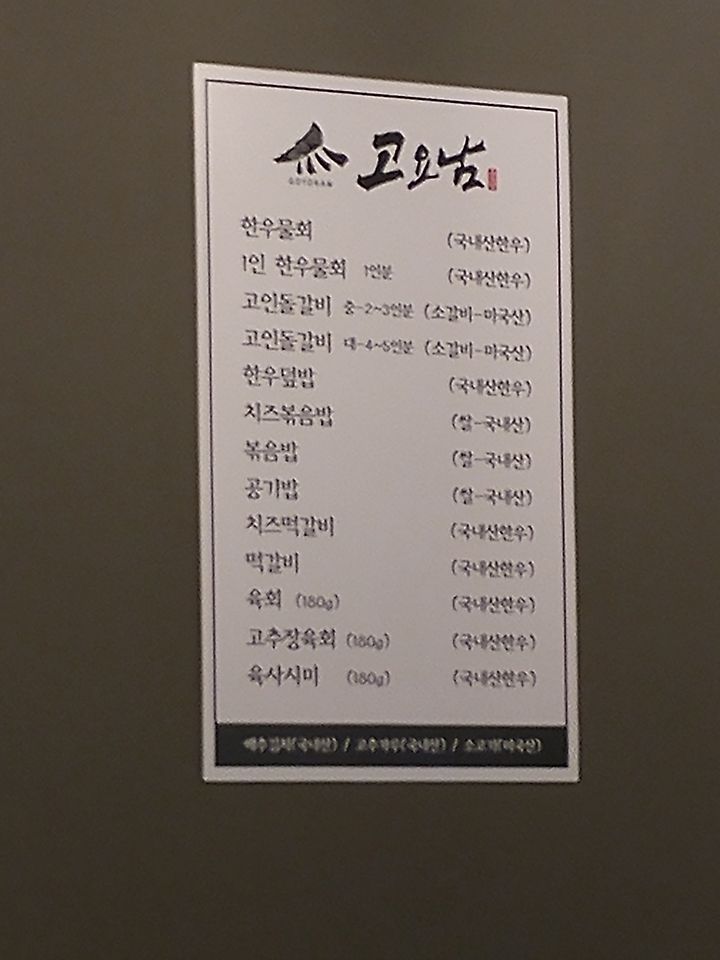 고요남
GOYONAM
한우물회 (국내산한우)
1인 한우물회 1인분 (국내산한우)
고인돌갈비 중-2~3인분 (소갈비-미국산)
고인돌갈비 대-4~5인분 (소갈비-미국산)
한우덮밥 (국내산한우)
치즈볶음밥 (쌀-국내산)
볶음밥 (쌀-국내산)
공기밥 (쌀-국내산)
치즈떡갈비 (국내산한우)
떡갈비 (국내산한우)
육회 (180g) (국내산한우)
고추장육회 (180g) (국내산한우)
육사시미 (180g) (국내산한우)
배추김치(국내산) / 고추가루(국내산) / 소고기(미국산)